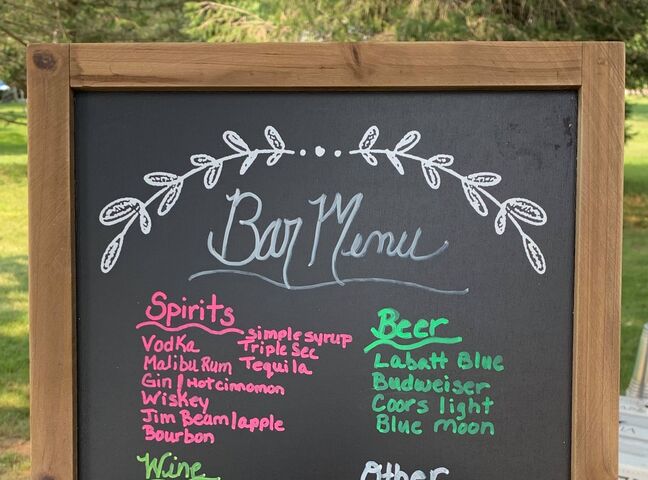 Bar Menu
Spirits
Vodka
Malibu Rum
Gin / Hot cinnamon
Wiskey
Jim Beam/apple
Bourbon
simple syrup
Triple Sec
Tequila
Beer
Labatt Blue
Budweiser
Coors light
Blue moon
Wine
Other